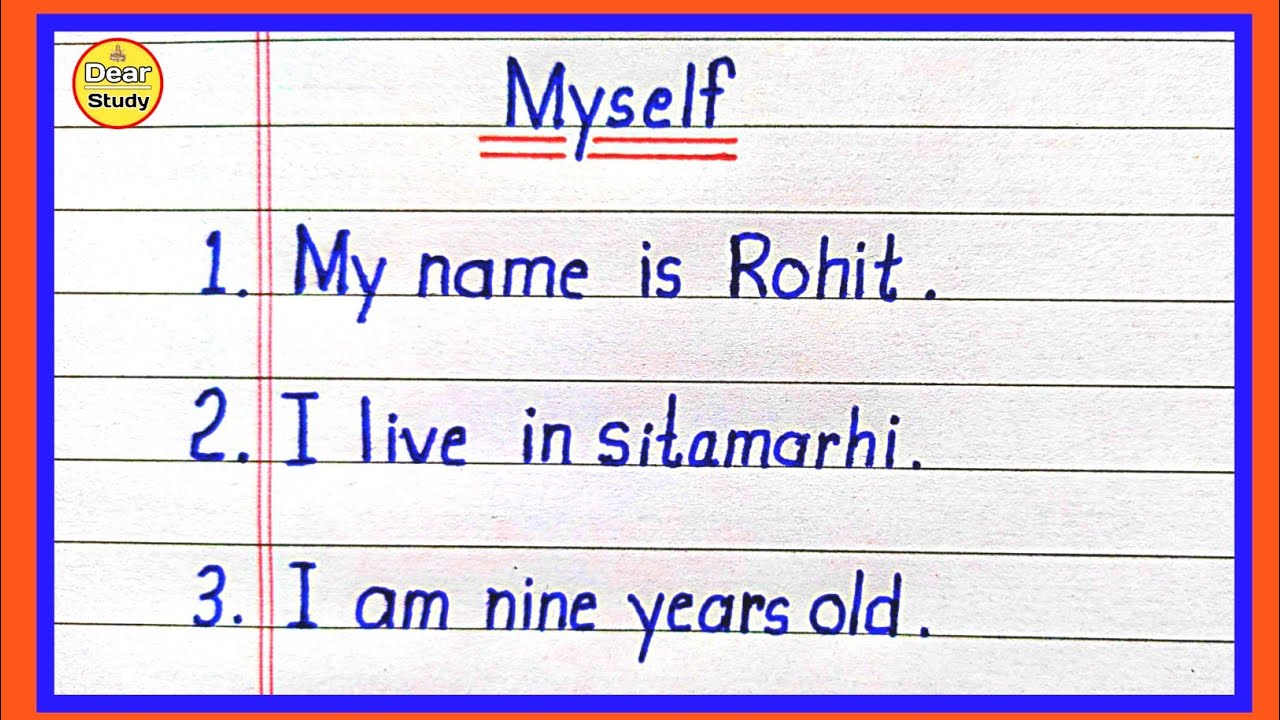 Dear
Study
Myself
1. My name is Rohit.
2. I live in sitamarhi.
3. I am nine years old.